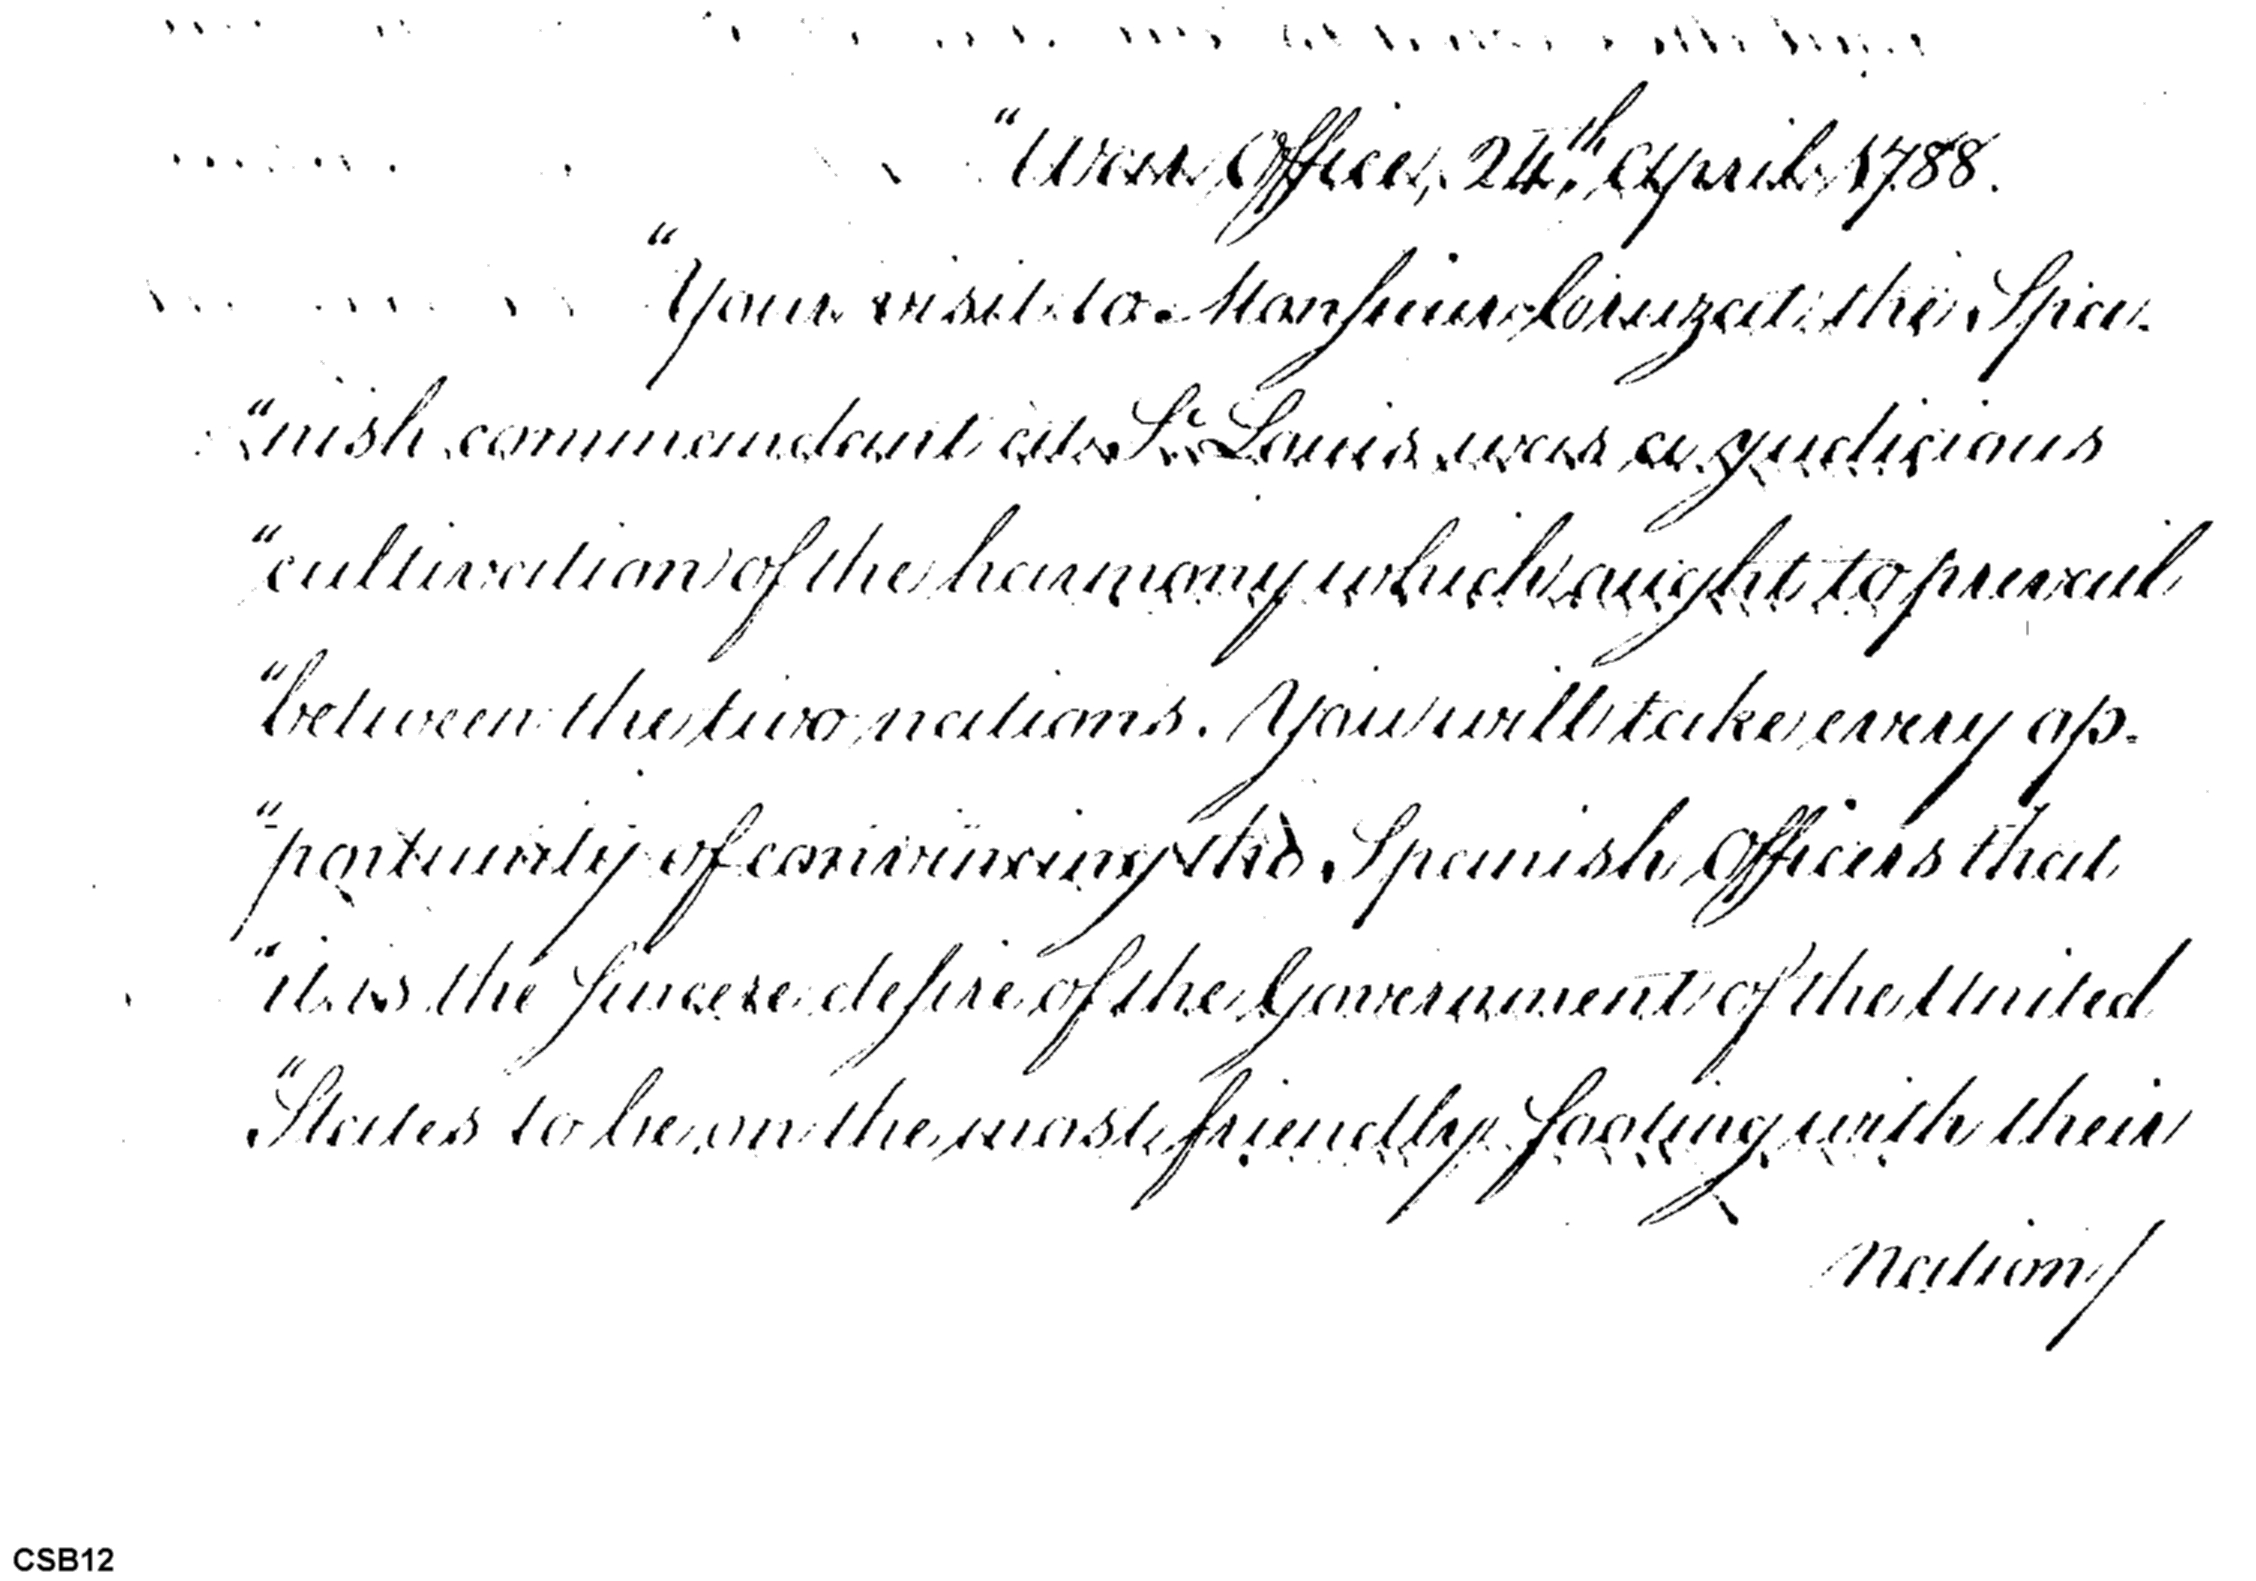 "War Office, 24th April 1788.
"Your visit to Monsieur Cruzat the Spa-
"nish commandant at St. Louis was a judicious
"cultivation of the harmony which ought to prevail
"between the two nations. You will take every op=
"portunity of convincing the Spanish Officers that
"it is the Sincere desire of the Government of the United
"States to be on the most friendly footing with their
nation/
CSB12